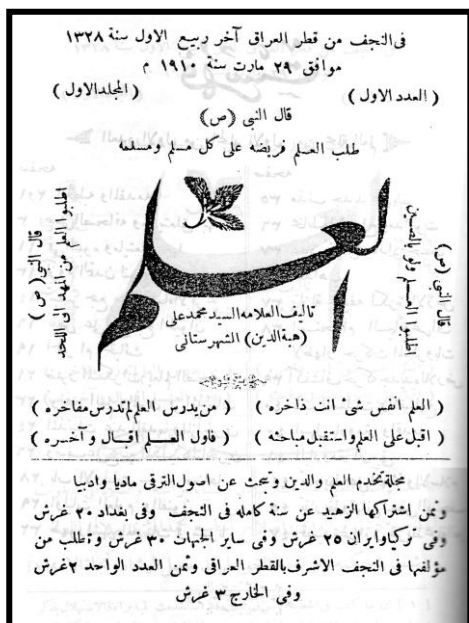 فى النجف من قطر العراق آخر ربيع الاول سنة ١٣٢٨
موافق ٢٩ مارت سنة ١٩١٠ م
( العدد الاول )
( المجلد الاول )
قال النبي (ص)
طلب العلم فريضه على كل مسلم ومسلمه
قال النبي (ص)
اطلبوا العلم ولو بالصين
العلم
اطلبوا العلم من المهد الى اللحد
قال النبي (ص)
تاليف العلامه السيد محمد على
(هبة الدين) الشهرستانى
( العلم انفس شئ انت ذاخره )
( من يدرس العلم لم تدرس مفاخره )
( اقبل على العلم واستقبل مباحثه )
( فاول العلم اقبال و آخره )
مجلة تخدم العلم والدين وتبحث عن اصول الترقى ماديا وادبيا
وثمن اشتراكها الزهيد عن سنة كامله فى النجف وفى بغداد ٢٠ غرش
وفى تركيا وايران ٢٥ غرش وفى ساير الجهات ٣٠ غرش وتطلب من
مؤلفها فى النجف الاشرف بالقطر العراقى وثمن العدد الواحد ٢ غرش
وفى الخارج ٣ غرش